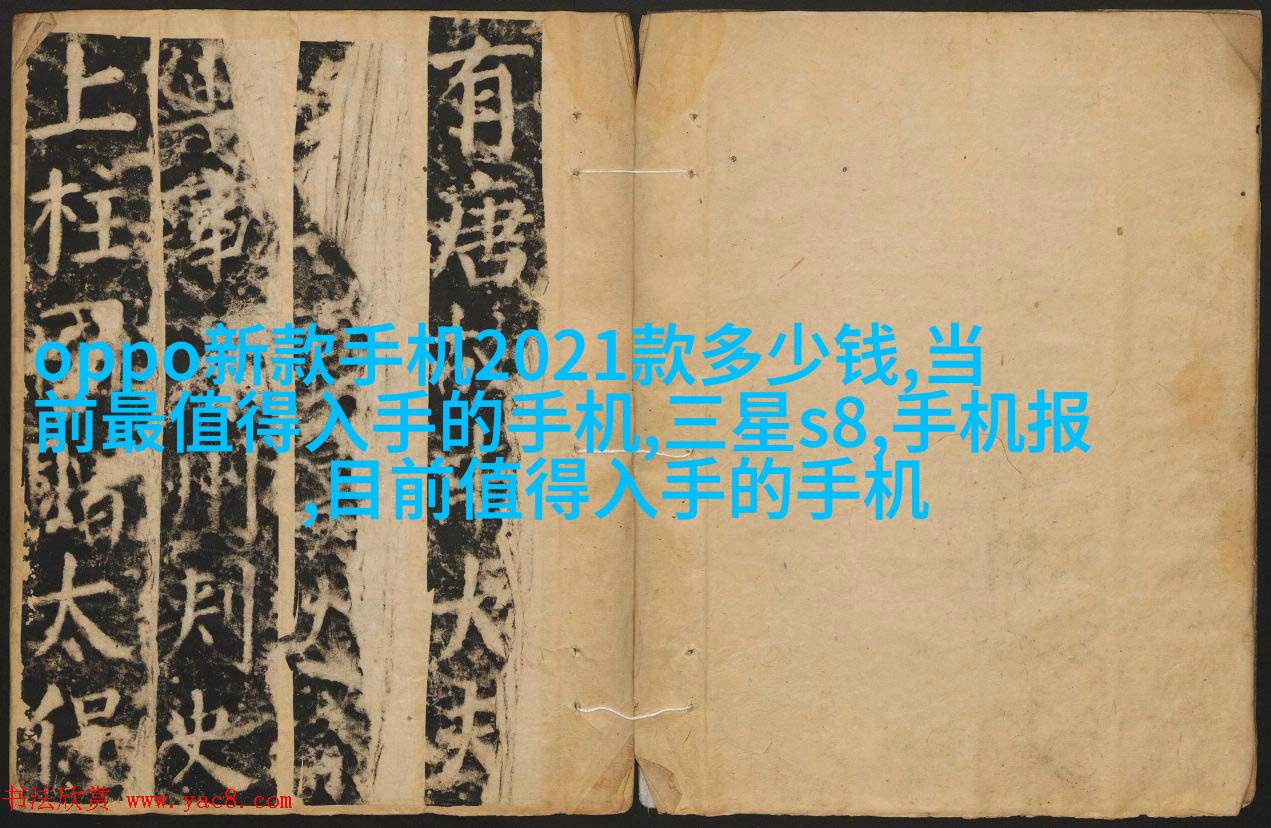 有唐
大夫
州刺史
上柱
太保
oppo新款手机2021款多少钱,当
前最值得入手的手机,三星s8,手机报
,目前值得入手的手机
书法欣赏 www.yac8.com